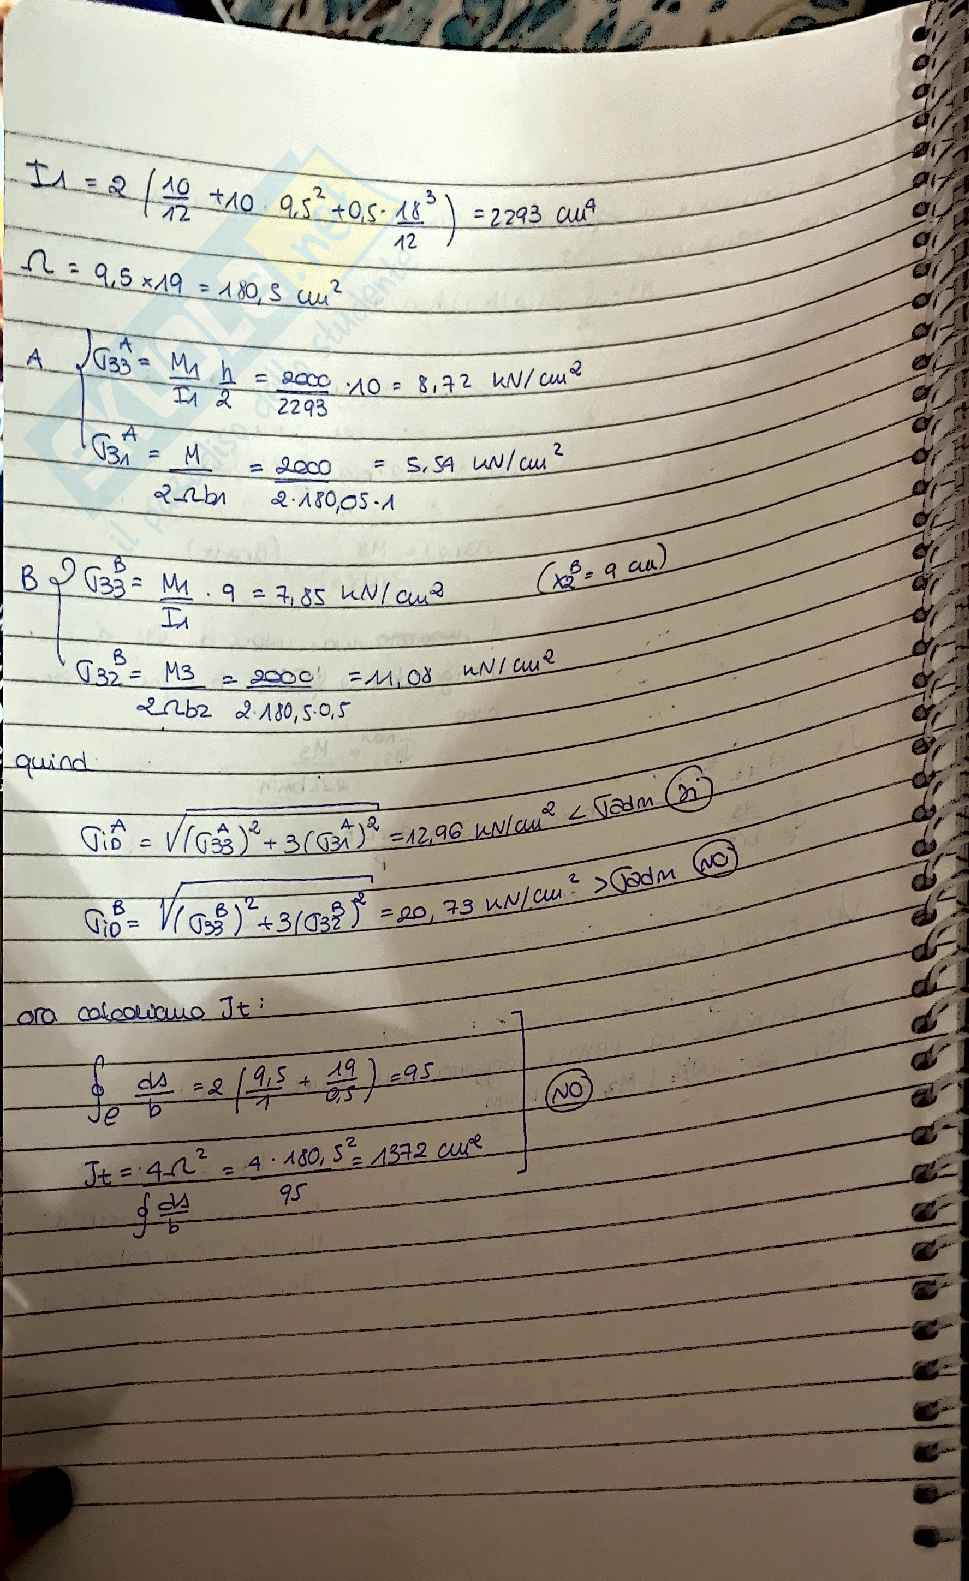 I1 = 2 (10/12 + 10 · 9,5² + 0,5 · 18³/12) = 2293 cm⁴
Ω = 9,5 × 19 = 180,5 cm²
A { σ33^A = M1/I1 h/2 = 2000/2293 · 10 = 8,72 kN/cm²
σ31^A = M/2Ωb1 = 2000/2·180,05·1 = 5,54 kN/cm²
B { σ33^B = M1/I1 · 9 = 7,85 kN/cm² (x2^B = 9 cm)
σ32^B = M3/2Ωb2 = 2000/2·180,5·0,5 = 11,08 kN/cm²
quind
σiD^A = √(σ33^A)² + 3(σ31^A)² = 12,96 kN/cm² < σadm si
σiD^B = √(σ33^B)² + 3(σ32^B)² = 20,73 kN/cm² > σadm NO
ora calcoliamo Jt:
∮e ds/b = 2 (9,5/1 + 19/0,5) = 95
NO
Jt = 4Ω²/∮ds/b = 4 · 180,5²/95 = 1372 cm²
SKUOLA.net